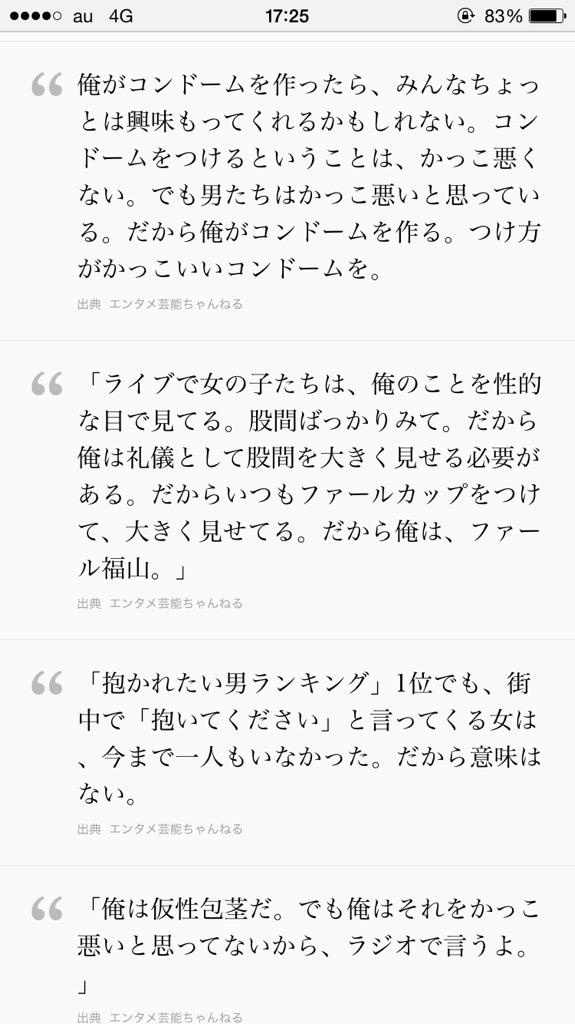 au 4G 17:25 83%
俺がコンドームを作ったら、みんなちょっ
とは興味もってくれるかもしれない。コン
ドームをつけるということは、かっこ悪く
ない。でも男たちはかっこ悪いと思ってい
る。だから俺がコンドームを作る。つけ方
がかっこいいコンドームを。
出典 エンタメ芸能ちゃんねる
「ライブで女の子たちは、俺のことを性的
な目で見てる。股間ばっかりみて。だから
俺は礼儀として股間を大きく見せる必要が
ある。だからいつもファールカップをつけ
て、大きく見せてる。だから俺は、ファー
ル福山。」
出典 エンタメ芸能ちゃんねる
「抱かれたい男ランキング」1位でも、街
中で「抱いてください」と言ってくる女は
、今まで一人もいなかった。だから意味は
ない。
出典 エンタメ芸能ちゃんねる
「俺は仮性包茎だ。でも俺はそれをかっこ
悪いと思ってないから、ラジオで言うよ。
」
出典 エンタメ芸能ちゃんねる